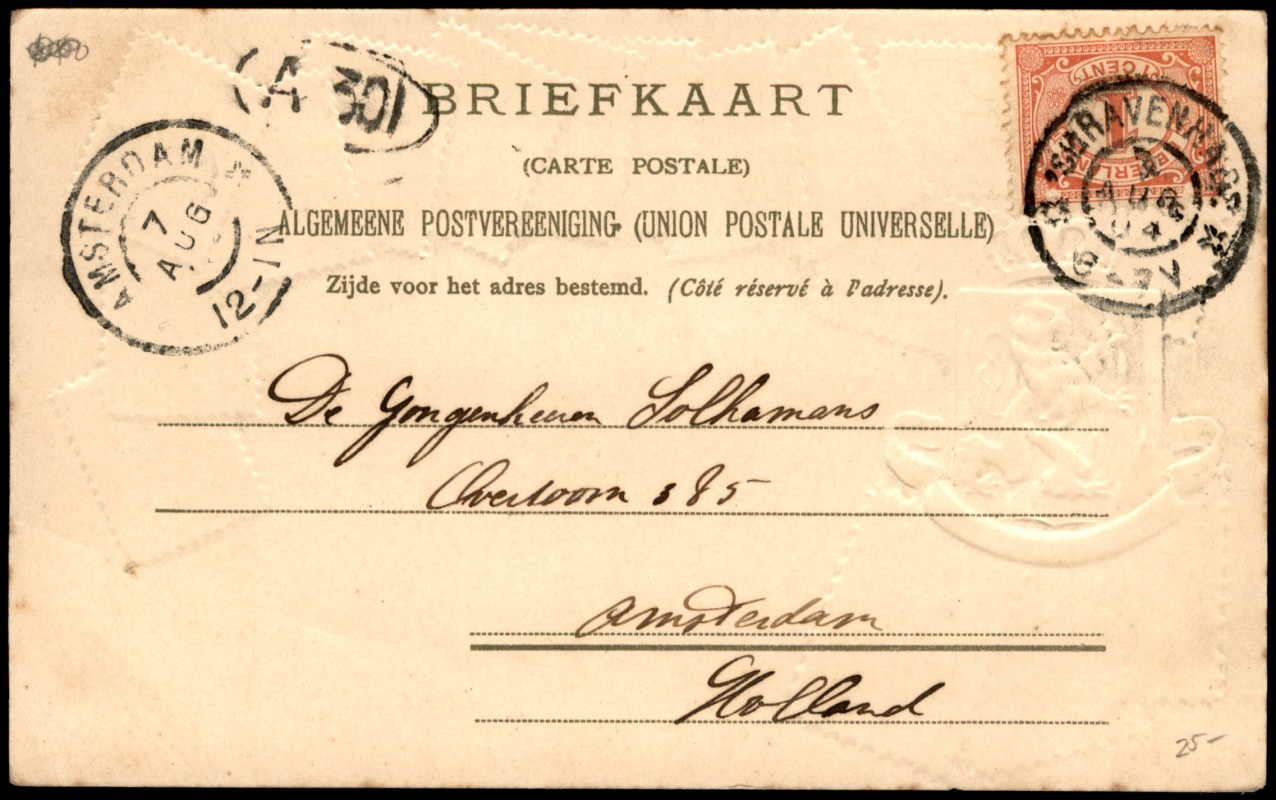 A 301
BRIEFKAART
(CARTE POSTALE)
ALGEMEENE POSTVEREENIGING (UNION POSTALE UNIVERSELLE)
Zijde voor het adres bestemd. (Côté réservé à l'adresse).
AMSTERDAM
7
AUG
12-1N
CENT
'SGRAVENHAGE
AUG
04
6-7V
De Jongenheeren Solkamans
Overtoom 385
Amsterdam
Holland
25-